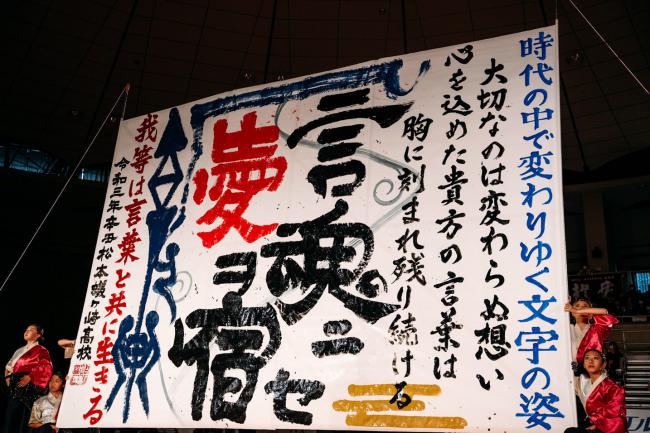 時代の中で変わりゆく文字の姿
大切なのは変わらぬ想い
心を込めた貴方の言葉は
胸に刻まれ残り続ける
言魂ニ
夢ヲ宿セ
我等は言葉と共に生きる
令和三年辛丑松本蟻ヶ崎高校